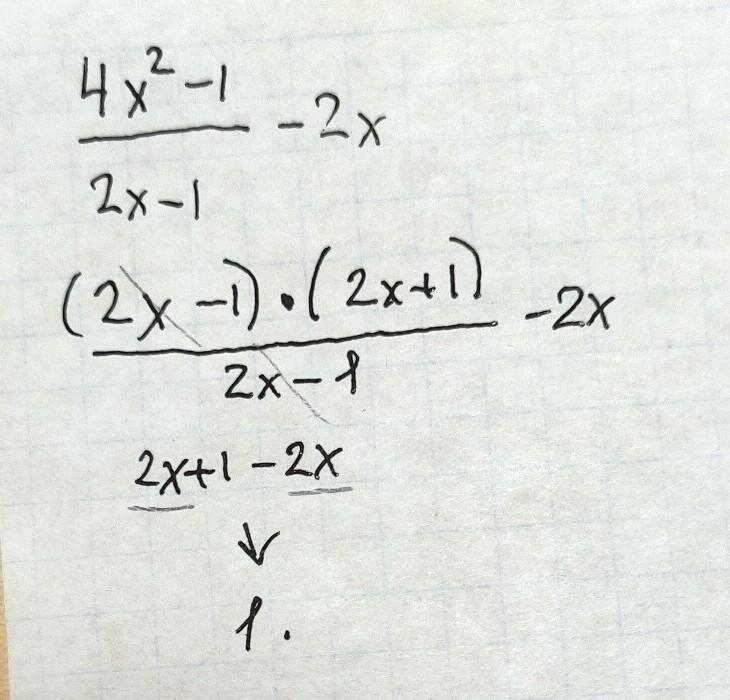 4x² - 1
/ 2x - 1 - 2x
(2x - 1) · (2x + 1)
/ 2x - 1 - 2x
2x + 1 - 2x
↓
1.